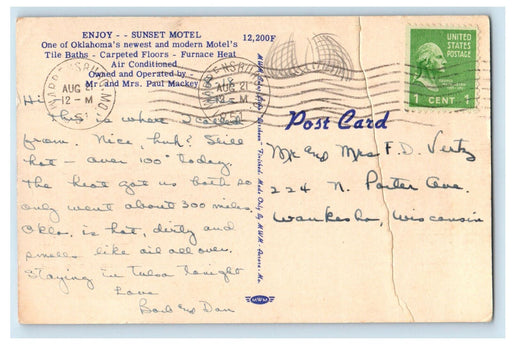 ENJOY - - SUNSET MOTEL
One of Oklahoma's newest and modern Motel's
Tile Baths - Carpeted Floors - Furnace Heat
Air Conditioned
Owned and Operated by
Mr. and Mrs. Paul Mackey
12,200F
WARRENSBURG, MO.
AUG 21
12-M
WARRENSBURG
AUG 21
12-M
UNITED STATES
POSTAGE
1 CENT 1
Hi
This is where I called
from. Nice, huh? Still
hot - over 100° today.
The heat got us both so
only went about 300 miles.
Okla. is hot, dirty and
smells like oil all over.
Staying in Tulsa tonight
Love
Barb and Dan
Post Card
Mr and Mrs F. D. Vertz
224 N. Porter Ave.
Waukesha, Wisconsin
MWM